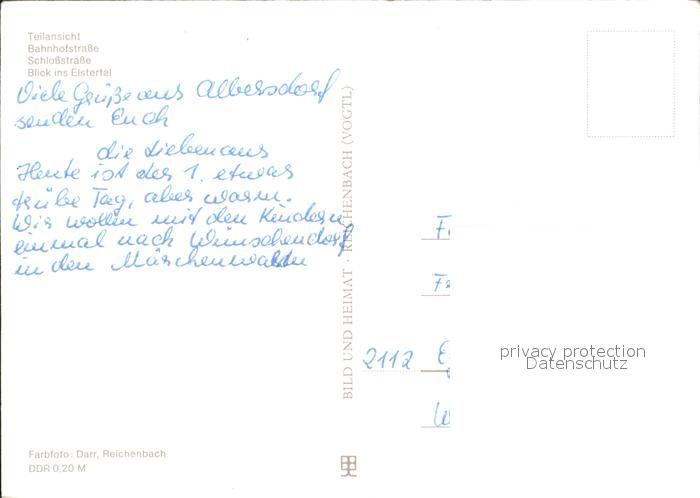 Teilansicht
Bahnhofstraße
Schloßstraße
Blick ins Elstertal
Viele Grüße aus Albersdorf
senden Euch
die Lieben aus
Heute ist der 1. etwas
trübe Tag, aber warm.
Wir wollen mit den Kindern
einmal nach Wünschendorf
in den Märchenwald
BILD UND HEIMAT · REICHENBACH (VOGTL)
2112
privacy protection
Datenschutz
Farbfoto: Darr, Reichenbach
DDR 0,20 M